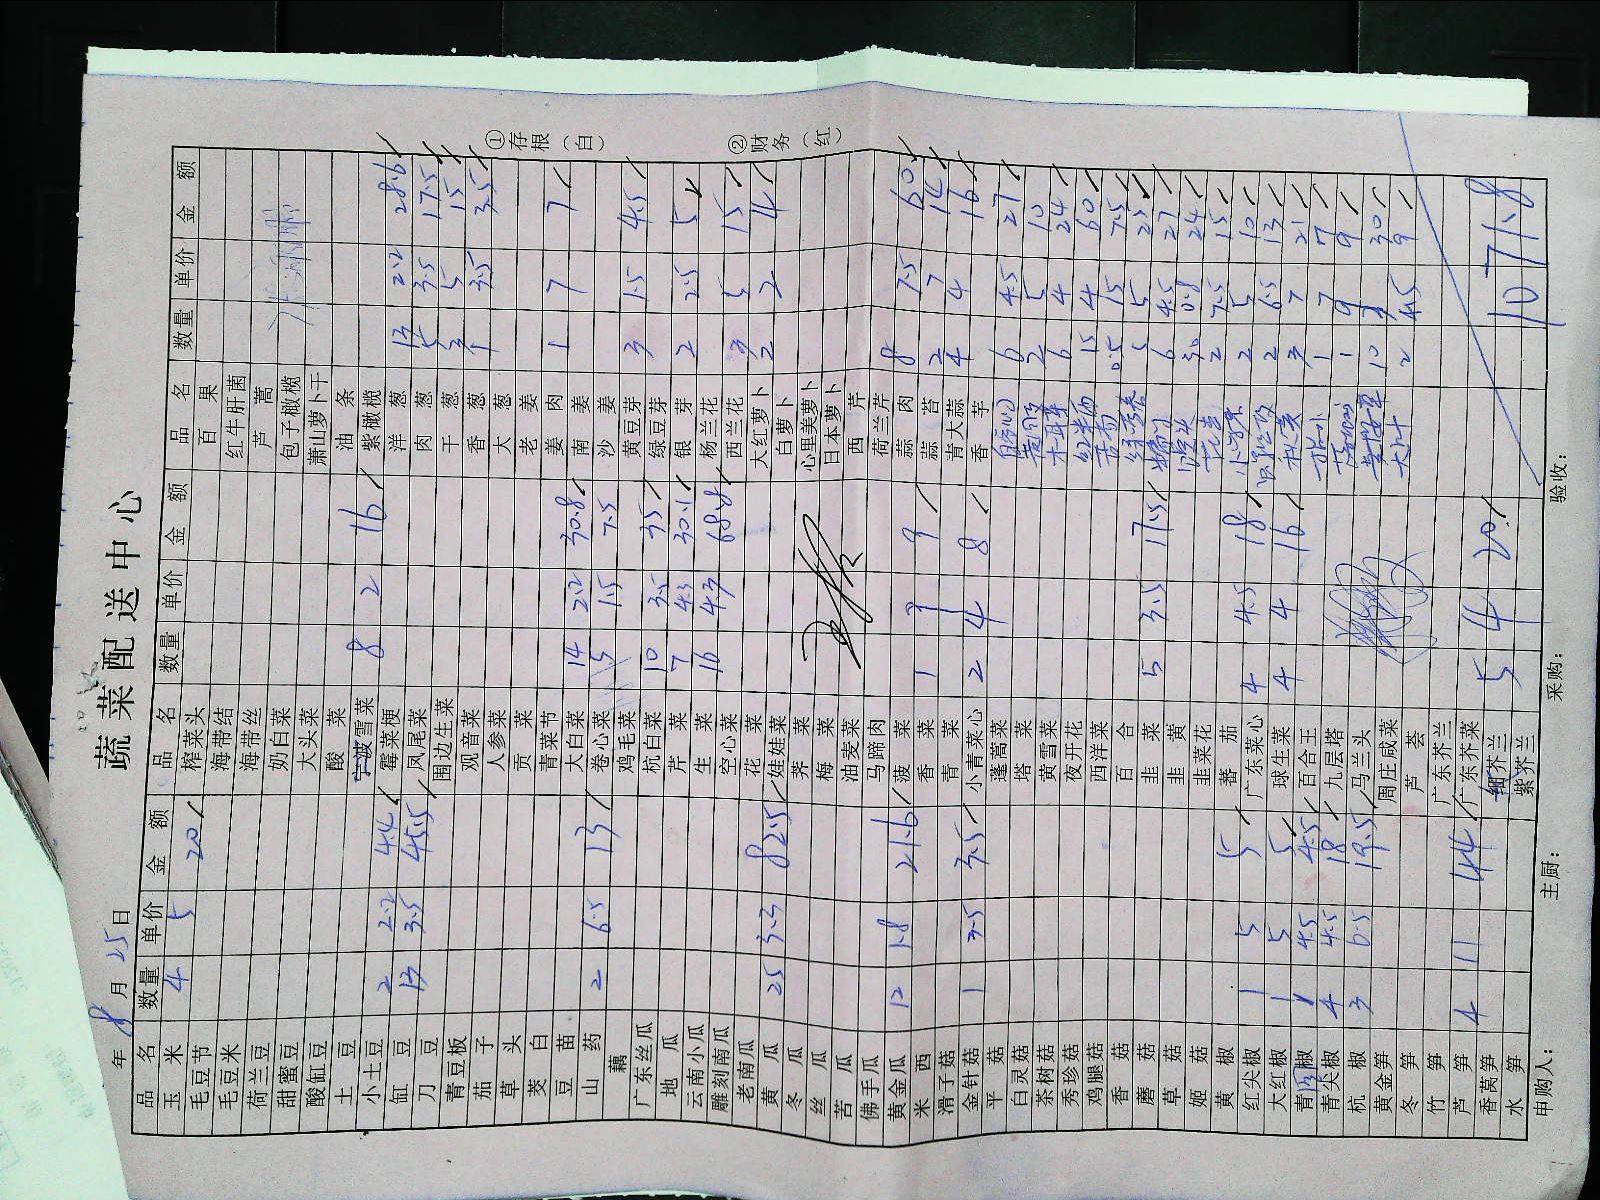 蔬菜配送中心
年 8 月 25 日
品名 数量 单价 金额
玉米 4 5 20
毛豆节
毛豆米
荷兰豆
甜蜜豆
酸缸豆
土豆
小土豆 2 2.2 4.4
缸豆 13 3.5 45.5
刀豆
青豆板
茄子
草头
茭白
豆苗
山药 2 6.5 13
藕
广东丝瓜
地瓜
云南小瓜
雕刻南瓜
老南瓜
黄瓜 25 3.3 82.5
冬瓜
丝瓜
苦瓜
佛手瓜
黄金瓜 12 1.8 21.6
米西
滑子菇
金针菇 1 3.5 3.5
平菇
白灵菇
茶树菇
秀珍菇
鸡腿菇
香菇
蘑菇
草菇
姬菇
黄椒
红尖椒 1 5 5
大红椒 1 5 5
青圆椒 1 4.5 4.5
青尖椒 4 4.5 18
杭椒 3 6.5 19.5
黄金笋
冬笋
竹笋
芦笋 4 11 44
香莴笋
水笋
品名 数量 单价 金额
榨菜头
海带结
海带丝
奶白菜
大头菜
酸菜
宁波雪菜 8 2 16
霉菜梗
凤尾菜
围边生菜
观音菜
人参菜
贡菜
青菜节
大白菜 14 2.2 30.8
卷心菜 5 1.5 7.5
鸡毛菜
杭白菜 10 3.5 35
芹菜 7 4.3 30.1
生菜 16 4.3 68.8
空心菜
花菜
娃娃菜
荠菜
梅菜
油麦菜
马蹄肉
菠菜
香菜 1 9 9
青菜
小青菜心 2 4 8
蓬蒿菜
塔菜
黄雪菜
夜开花
西洋菜
百合
韭菜 5 3.5 17.5
韭黄
韭菜花
番茄
广东菜心 4 4.5 18
球生菜 4 4 16
百合王
九层塔
马兰头
周庄咸菜
芦荟
广东芥兰
广东芥菜
细芥兰 5 4 20
紫芥兰
品名 数量 单价 金额
百果
红牛肝菌
芦蒿
包子橄榄
萧山萝卜干
油条
紫橄榄
洋葱 13 2.2 28.6
肉葱 5 3.5 17.5
干葱 3 5 15
香葱 1 3.5 3.5
大葱
老姜
姜肉 1 7 7
南姜
沙姜
黄豆芽 3 1.5 4.5
绿豆芽
银芽 2 2.5 5
杨兰花
西兰花 3 5 15
大红萝卜 2 2 4
白萝卜
心里美萝卜
日本萝卜
西芹
荷兰芹
蒜肉 8 7.5 60
蒜苔 2 7 14
青大蒜 4 4 16
香芋
6 4.5 27
2 5 10
木耳 6 4 24
15 4 60
0.5 15 7.5
5 5 25
6 4.5 27
30 0.8 24
2 7.5 15
2 5 10
2 6.5 13
3 7 21
1 7 7
1 9 9
10 3 30
2 4.5 9
1071.8
申购人： 主厨： 采购： 验收：
①存根（白）
②财务（红）